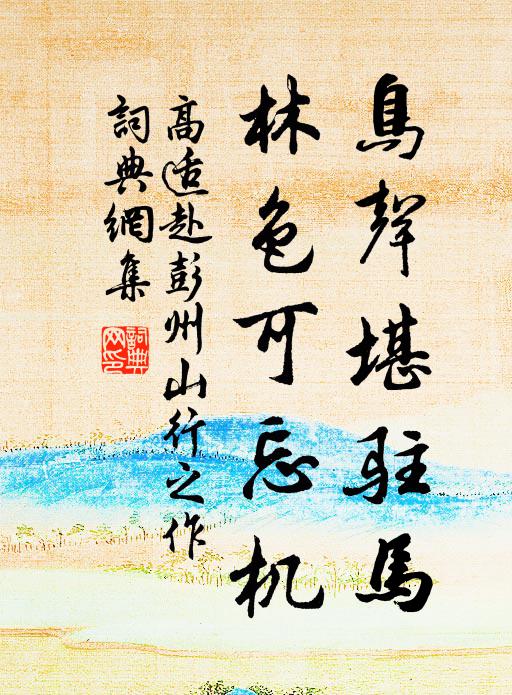 鳥聲堪駐馬
林色可忘机
高适赴彭州山行之作
詞典網集
詞典
网印